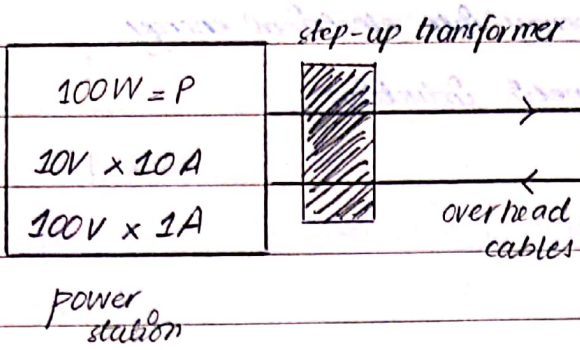 step-up transformer
100W = P
10V × 10A
100V × 1A
overhead
cables
power
station